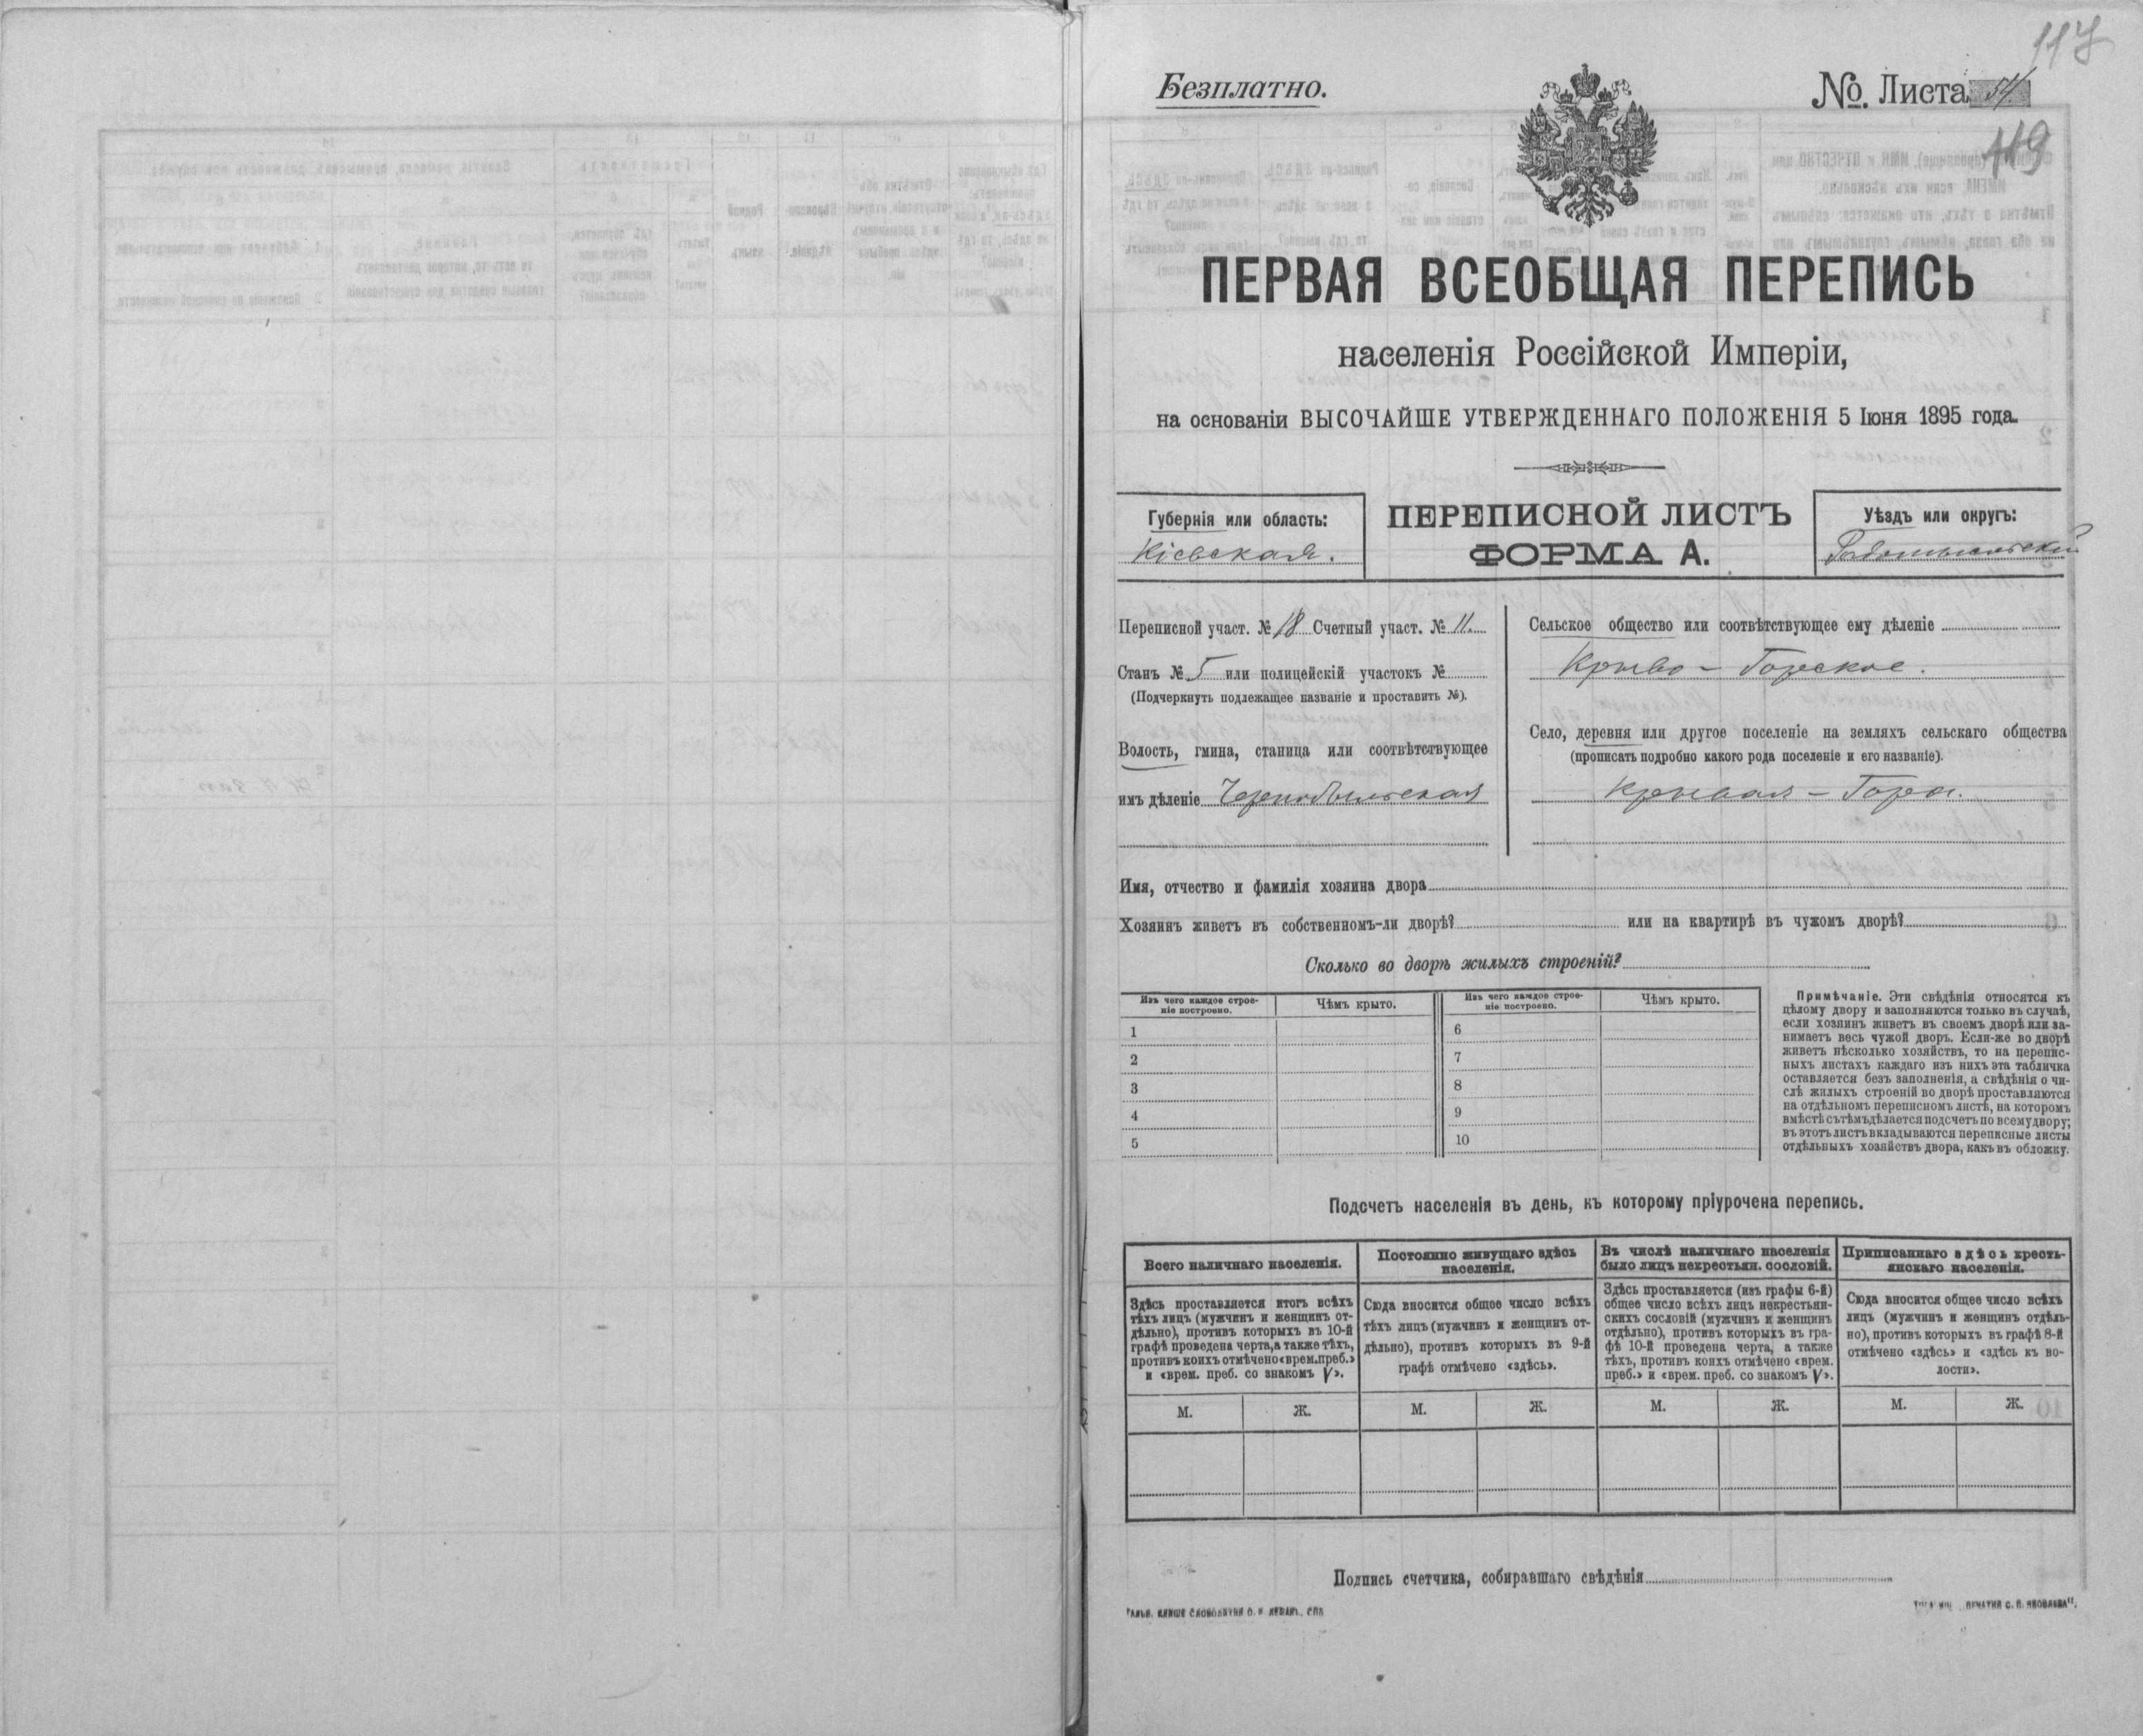 117
Безплатно.
№. Листа 54.
119
ПЕРВАЯ ВСЕОБЩАЯ ПЕРЕПИСЬ
населенія Россійской Имперіи,
на основаніи ВЫСОЧАЙШЕ УТВЕРЖДЕННАГО ПОЛОЖЕНІЯ 5 Іюня 1895 года.
Губернія или область:
Кіевская.
ПЕРЕПИСНОЙ ЛИСТЪ
ФОРМА А.
Уѣздъ или округъ:
Радомысльскій
Переписной участ. № 18 Счетный участ. № 11.
Станъ № 5 или полицейскій участокъ №
(Подчеркнуть подлежащее названіе и проставить №).
Волость, гмина, станица или соотвѣтствующее
имъ дѣленіе Чернобыльская
Сельское общество или соотвѣтствующее ему дѣленіе
Криво-Горское.
Село, деревня или другое поселеніе на земляхъ сельскаго общества
(прописать подробно какого рода поселеніе и его названіе).
Кривая-Гора.
Имя, отчество и фамилія хозяина двора
Хозяинъ живетъ въ собственномъ-ли дворѣ? или на квартирѣ въ чужомъ дворѣ?
Сколько во дворѣ жилыхъ строеній?
Изъ чего каждое строе-
ніе построено.
Чѣмъ крыто.
Изъ чего каждое строе-
ніе построено.
Чѣмъ крыто.
1
2
3
4
5
6
7
8
9
10
Примѣчаніе. Эти свѣдѣнія относятся къ
цѣлому двору и заполняются только въ случаѣ,
если хозяинъ живетъ въ своемъ дворѣ или за-
нимаетъ весь чужой дворъ. Если-же во дворѣ
живетъ нѣсколько хозяйствъ, то на перепис-
ныхъ листахъ каждаго изъ нихъ эта табличка
оставляется безъ заполненія, а свѣдѣнія о чи-
слѣ жилыхъ строеній во дворѣ проставляются
на отдѣльномъ переписномъ листѣ, на которомъ
вмѣстѣ съ тѣмъ дѣлается подсчетъ по всему двору;
въ этотъ листъ вкладываются переписные листы
отдѣльныхъ хозяйствъ двора, какъ въ обложку.
Подсчетъ населенія въ день, къ которому пріурочена перепись.
Всего наличнаго населенія.
Здѣсь проставляется итогъ всѣхъ
тѣхъ лицъ (мужчинъ и женщинъ от-
дѣльно), противъ которыхъ въ 10-й
графѣ проведена черта, а также тѣхъ,
противъ коихъ отмѣчено «врем. преб.»
и «врем. преб. со знакомъ V».
Постоянно живущаго здѣсь
населенія.
Сюда вносится общее число всѣхъ
тѣхъ лицъ (мужчинъ и женщинъ от-
дѣльно), противъ которыхъ въ 9-й
графѣ отмѣчено «здѣсь».
Въ числѣ наличнаго населенія
было лицъ некрестьян. сословій.
Здѣсь проставляется (изъ графы 6-й)
общее число всѣхъ лицъ некрестьян-
скихъ сословій (мужчинъ и женщинъ
отдѣльно), противъ которыхъ въ гра-
фѣ 10-й проведена черта, а также
тѣхъ, противъ коихъ отмѣчено «врем.
преб.» и «врем. преб. со знакомъ V».
Приписаннаго здѣсь кресть-
янскаго населенія.
Сюда вносится общее число всѣхъ
лицъ (мужчинъ и женщинъ отдѣль-
но), противъ которыхъ въ графѣ 8-й
отмѣчено «здѣсь» и «здѣсь къ во-
лости».
М. Ж. М. Ж. М. Ж. М. Ж.
Подпись счетчика, собиравшаго свѣдѣнія